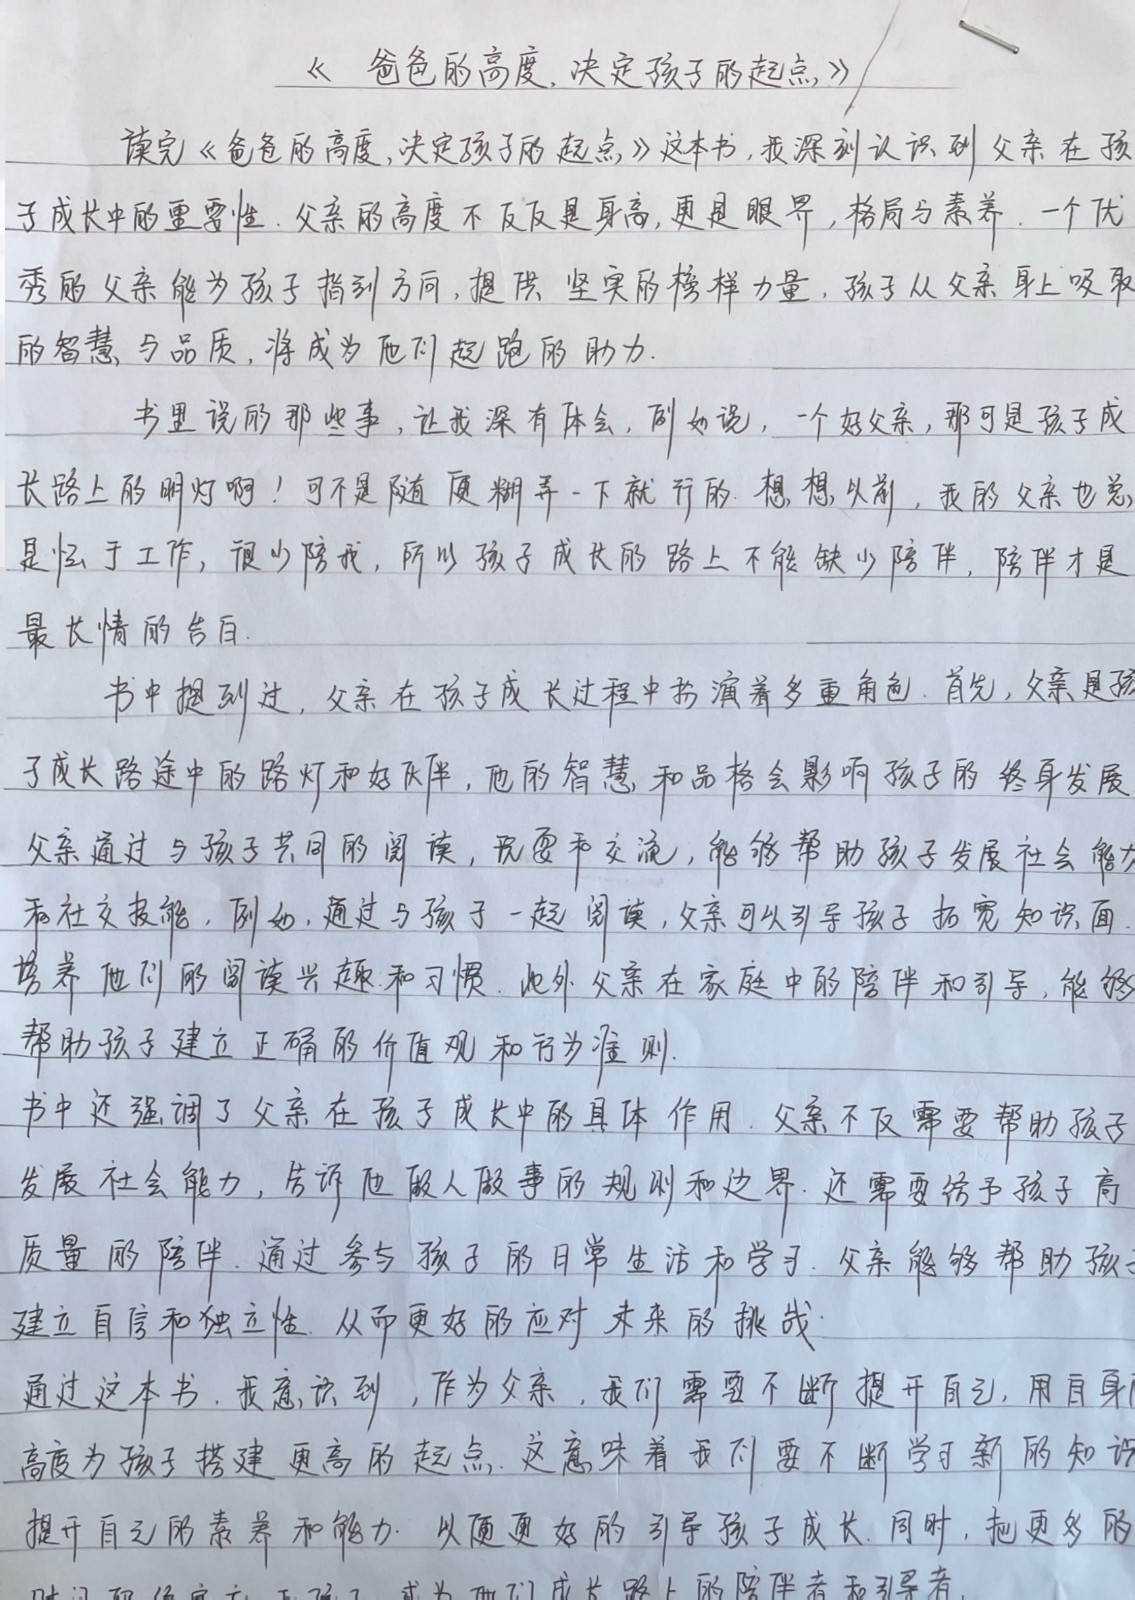 《爸爸的高度,决定孩子的起点》
读完《爸爸的高度,决定孩子的起点》这本书,我深刻认识到父亲在孩
子成长中的重要性.父亲的高度不仅仅是身高,更是眼界,格局与素养.一个优
秀的父亲能为孩子指到方向,提供坚实的榜样力量,孩子从父亲身上吸取
的智慧与品质,将成为他们起跑的助力.
书里说的那些事,让我深有体会.例如说,一个好父亲,那可是孩子成
长路上的明灯啊!可不是随便糊弄一下就行的.想想以前,我的父亲也总
是忙于工作,很少陪我,所以孩子成长的路上不能缺少陪伴,陪伴才是
最长情的告白.
书中提到过,父亲在孩子成长过程中扮演着多重角色.首先,父亲是孩
子成长路途中的路灯和好伙伴,他的智慧和品格会影响孩子的终身发展
父亲通过与孩子共同的阅读,玩耍和交流,能够帮助孩子发展社会能力
和社交技能.例如,通过与孩子一起阅读,父亲可以引导孩子拓宽知识面.
培养他们的阅读兴趣和习惯.此外父亲在家庭中的陪伴和引导,能够
帮助孩子建立正确的价值观和行为准则.
书中还强调了父亲在孩子成长中的具体作用.父亲不仅需要帮助孩子
发展社会能力,告诉他做人做事的规则和边界.还需要给予孩子高
质量的陪伴.通过参与孩子的日常生活和学习.父亲能够帮助孩子
建立自信和独立性.从而更好的应对未来的挑战.
通过这本书.我意识到,作为父亲,我们需要不断提升自己,用自身的
高度为孩子搭建更高的起点.这意味着我们要不断学习新的知识
提升自己的素养和能力.以便更好的引导孩子成长.同时,把更多的
成为他们成长路上的陪伴者和引导者.